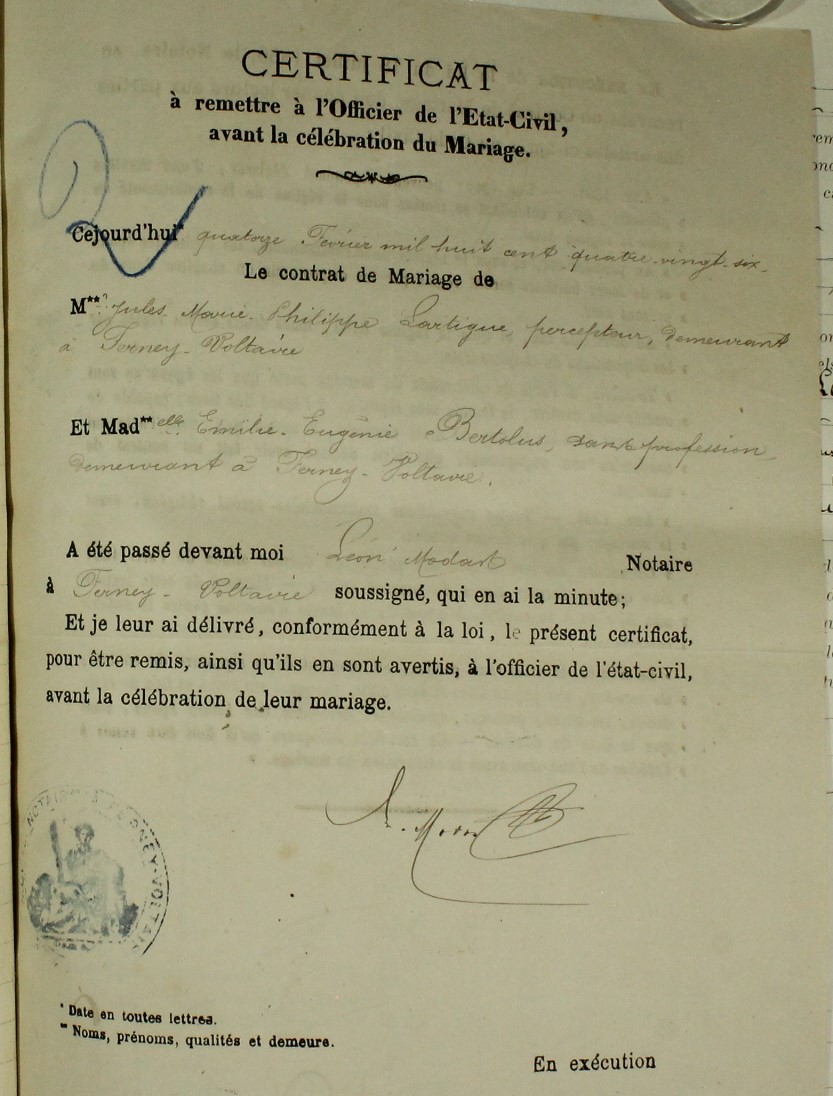 CERTIFICAT
à remettre à l'Officier de l'Etat-Civil,
avant la célébration du Mariage.
Cejourd'hui quatorze Février mil huit cent quatre-vingt-six.
Le contrat de Mariage de
M** Jules Marie Philippe Lartigue, percepteur, demeurant
à Ferney-Voltaire
Et Mad**elle Emilie-Eugénie Bertolus, sans profession,
demeurant à Ferney-Voltaire.
A été passé devant moi Léon Modart Notaire
à Ferney-Voltaire soussigné, qui en ai la minute;
Et je leur ai délivré, conformément à la loi, le présent certificat,
pour être remis, ainsi qu'ils en sont avertis, à l'officier de l'état-civil,
avant la célébration de leur mariage.
* Date en toutes lettres.
** Noms, prénoms, qualités et demeure.
En exécution